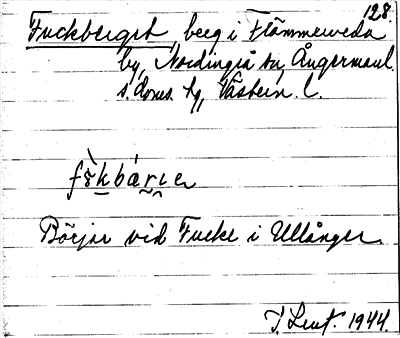 128.
Fuckberget, berg i Flämmeweda
by, Nordingrå sn, Ångermanl.
s. doms. tg, Västern. l.
fö̀kbárɩe
Börjar vid Fucke i Ullånger.
T. Lent. 1944.